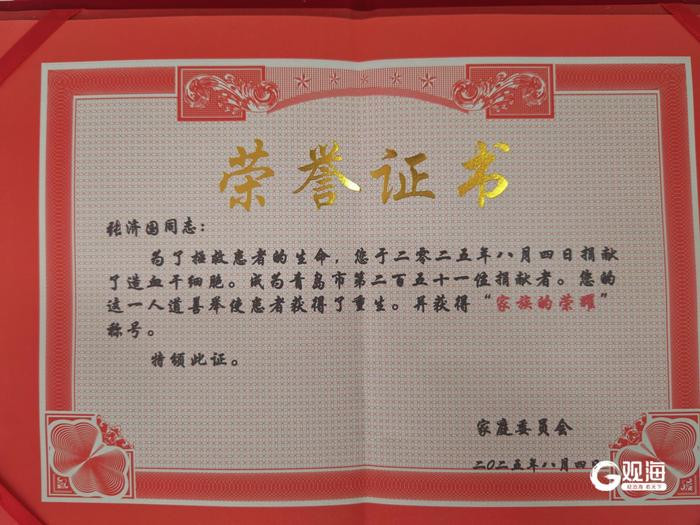 荣誉证书
张济国同志：
为了拯救患者的生命，您于二零二五年八月四日捐献
了造血干细胞。成为青岛市第二百五十一位捐献者。您的
这一人道善举使患者获得了重生。并获得“家族的荣耀”
称号。
特颁此证。
家庭委员会
二〇二五年八月四日
观海